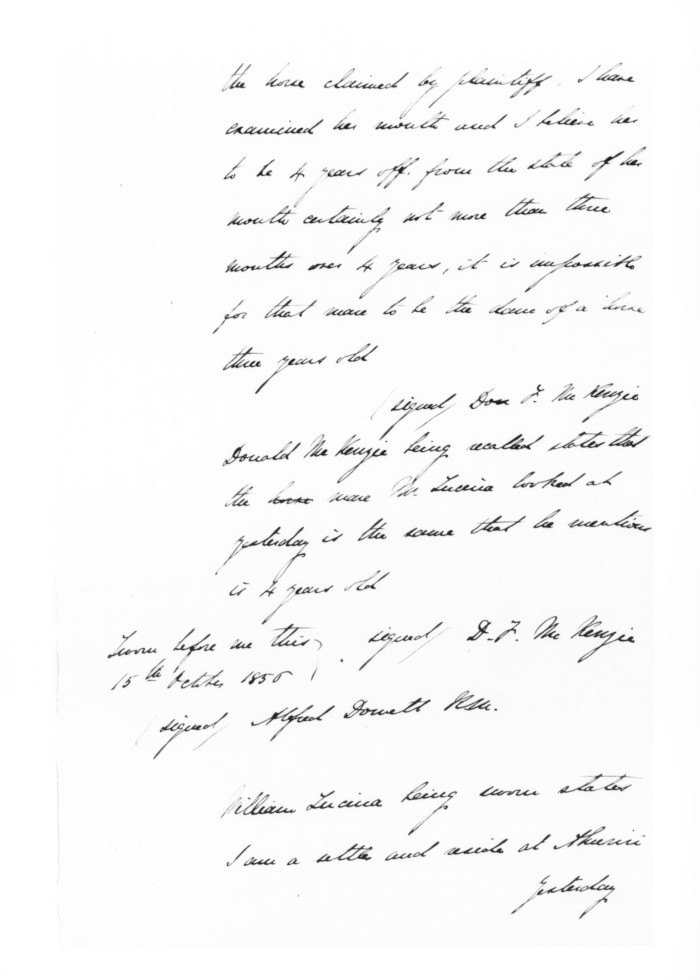 the horse claimed by plaintiff. I have
examined her mouth and I believe her
to be 4 years off. from the state of her
mouth certainly not more than three
months over 4 years, it is impossible
for that mare to be the dam of a horse
three years old
(signed) Don F. McKenzie
Donald McKenzie being recalled states that
the horse mare Mr. Lucena looked at
yesterday is the same that he mentions
is 4 years old
Sworn before me this) signed) D. F. McKenzie
15th October 1856
(signed) Alfred Domett RM.
William Lucena being sworn states
I am a settler and reside at Ahuriri
Yesterday